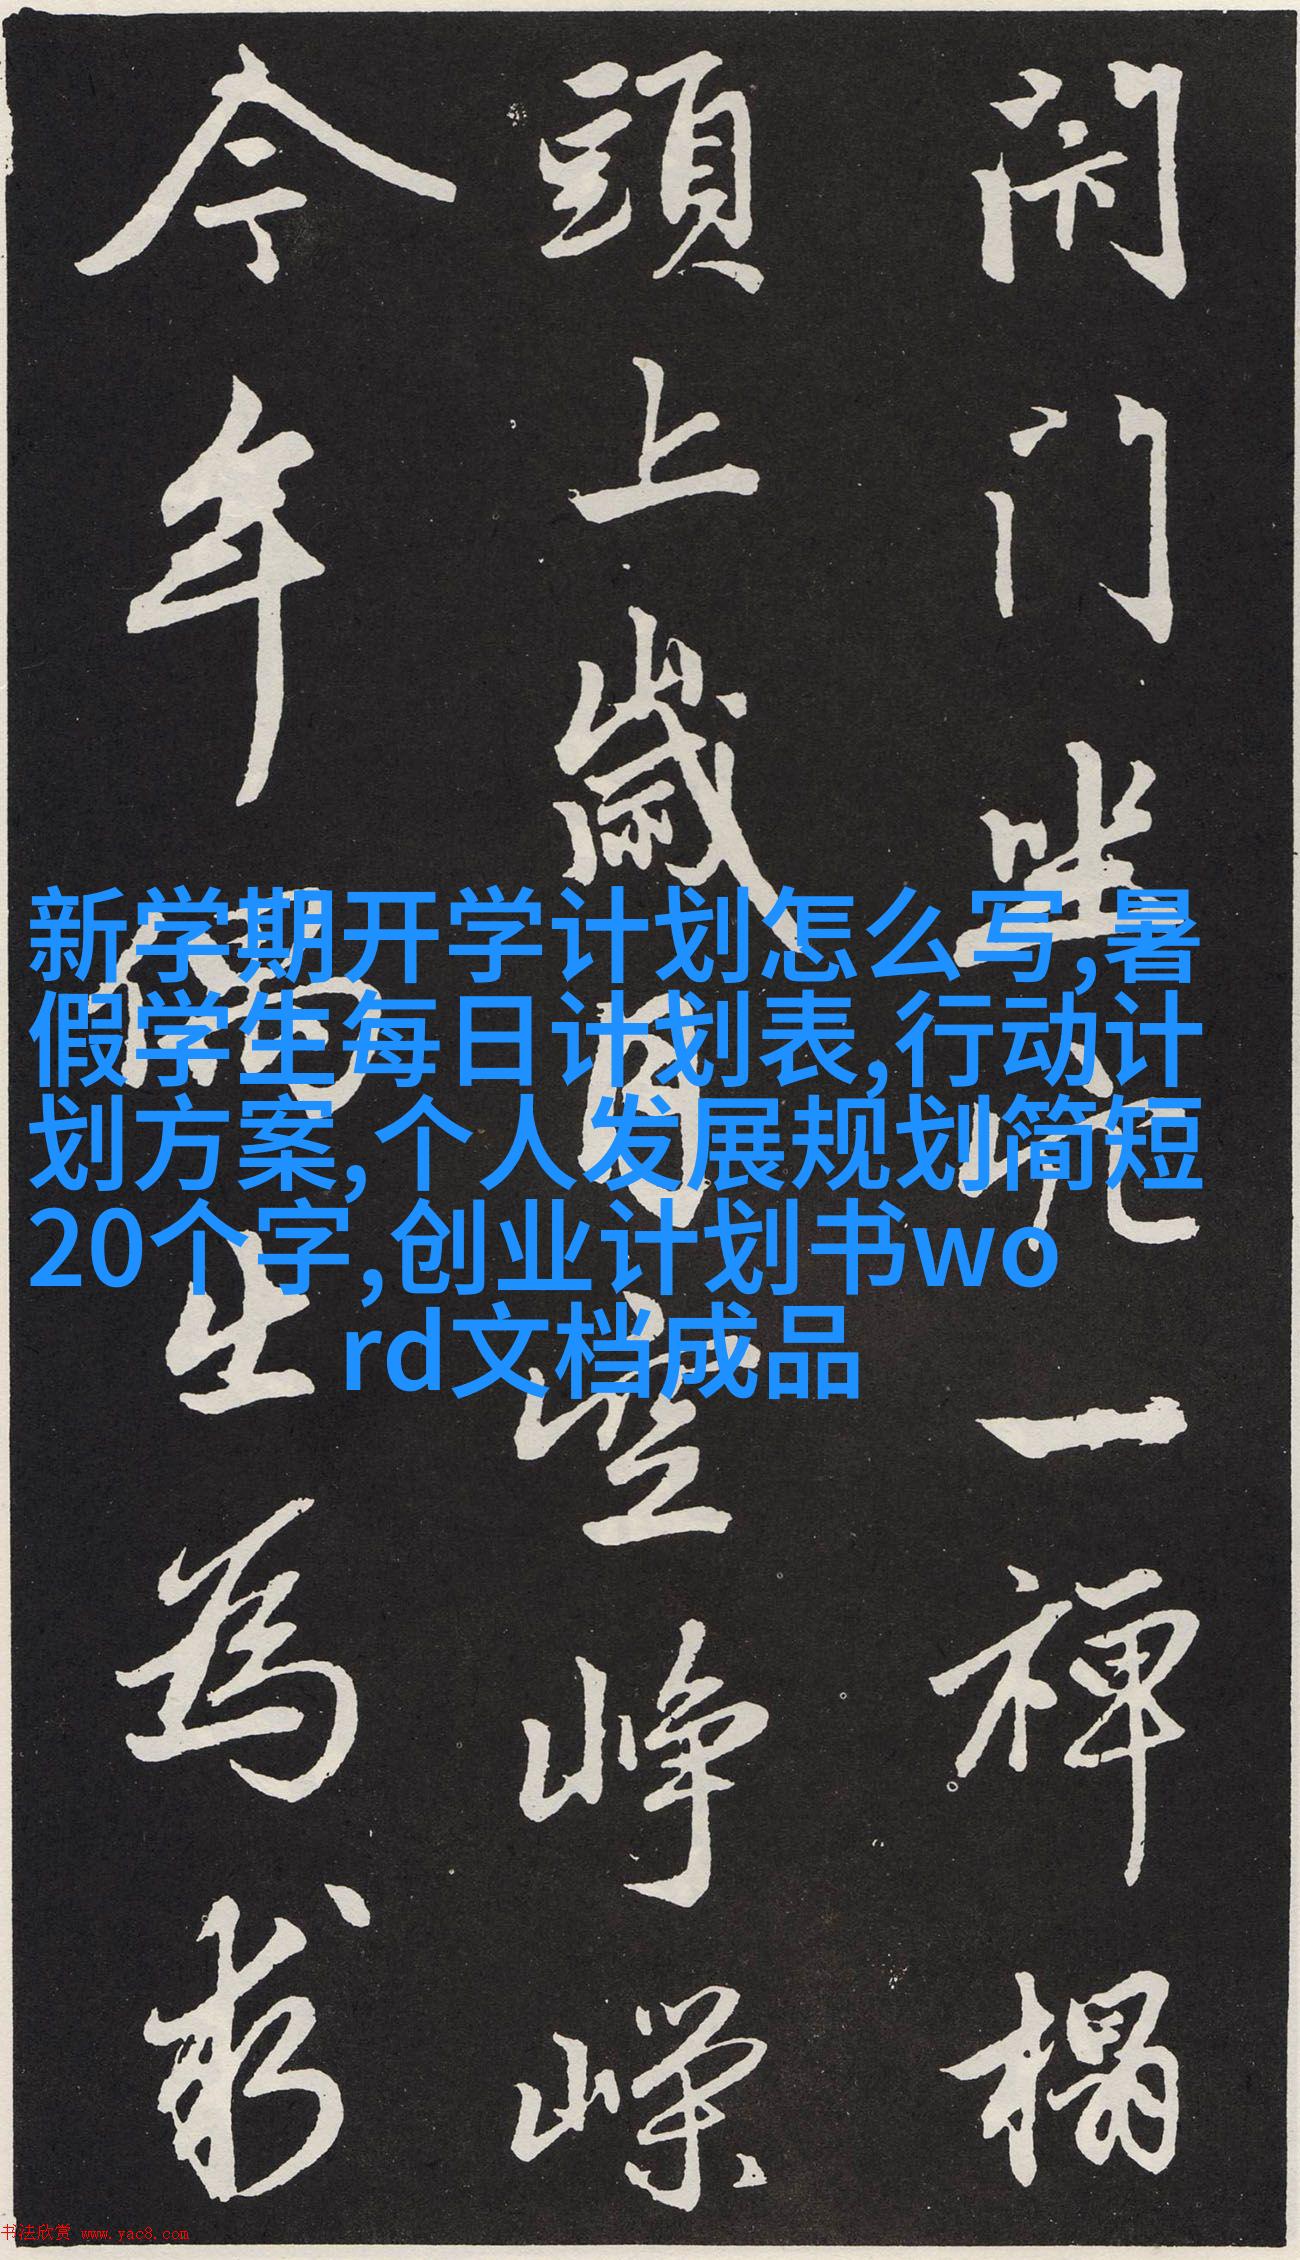 闭门坐穴一禅榻
頭上歲月空峥嵘
今年偶出為求
新学期开学计划怎么写,暑
假学生每日计划表,行动计
划方案,个人发展规划简短
20个字,创业计划书wo
rd文档成品
书法欣赏 www.yac8.com